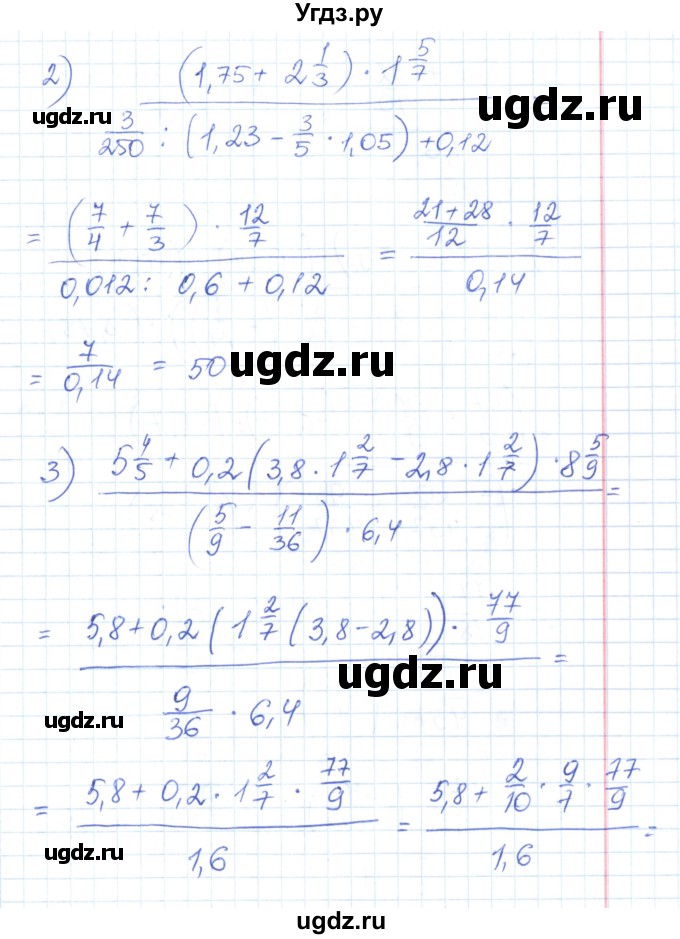 Угдз.ру
2) (1,75 + 2 1/3) · 1 5/7
ugdz.ru
3/250 : (1,23 − 3/5 · 1,05) + 0,12
ugdz.ru
= (7/4 + 7/3) · 12/7 / 0,012 : 0,6 + 0,12 = 21+28/12 · 12/7 / 0,14
= 7/0,14 = 50
ugdz.ru
3) 5 4/5 + 0,2 (3,8 · 1 2/7 − 2,8 · 1 2/7) · 8 5/9 / (5/9 − 11/36) · 6,4 =
= 5,8 + 0,2 (1 2/7 (3,8 − 2,8)) · 77/9 / 9/36 · 6,4 =
ugdz.ru
ugdz.ru
= 5,8 + 0,2 · 1 2/7 · 77/9 / 1,6 = 5,8 + 2/10 · 9/7 · 77/9 / 1,6 =
ugdz.ru
ugdz.ru
ugdz.ru